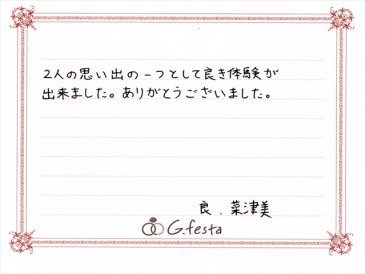 2人の思い出の一つとして良き体験が
出来ました。ありがとうございました。
良．菜津美
G.festa